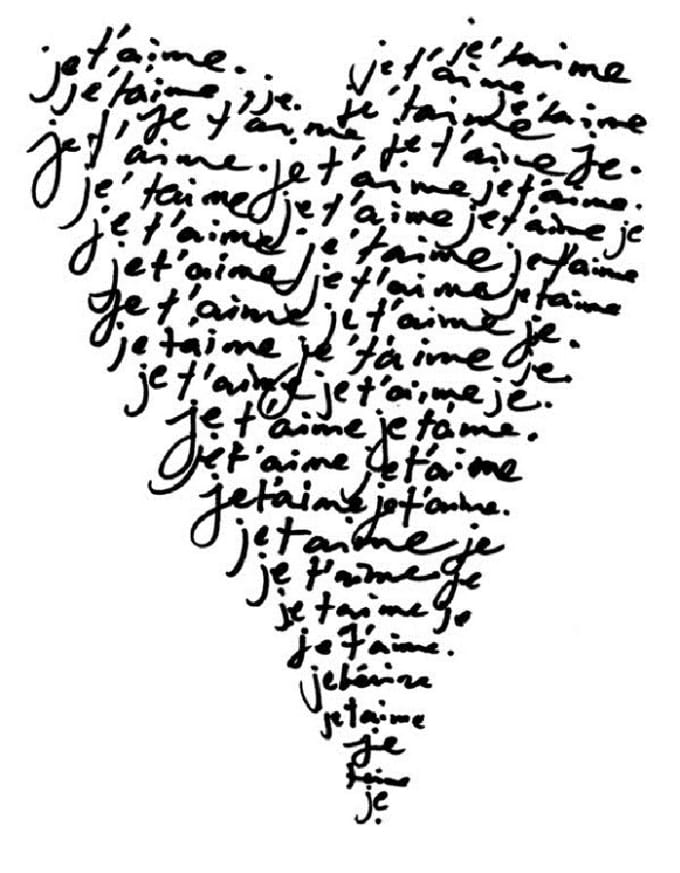 je t'aime. je t'aime
je t'aime, je. je t'aime
je t'aime je t'aime je t'aime
je t'aime. je t'aime je.
je t'aime je t'aime je t'aime.
je t'aime je t'aime je t'aime je
je t'aime je t'aime je t'aime
je t'aime je t'aime je t'aime
je t'aime je t'aime je.
je taime je t'aime je.
je t'aime je t'aime je.
je t'aime je t'aime.
je t'aime je t'aime
je t'aime je t'aime.
je taime je
je t'aime je
je taime je
je t'aime.
je taime
je
taime
je